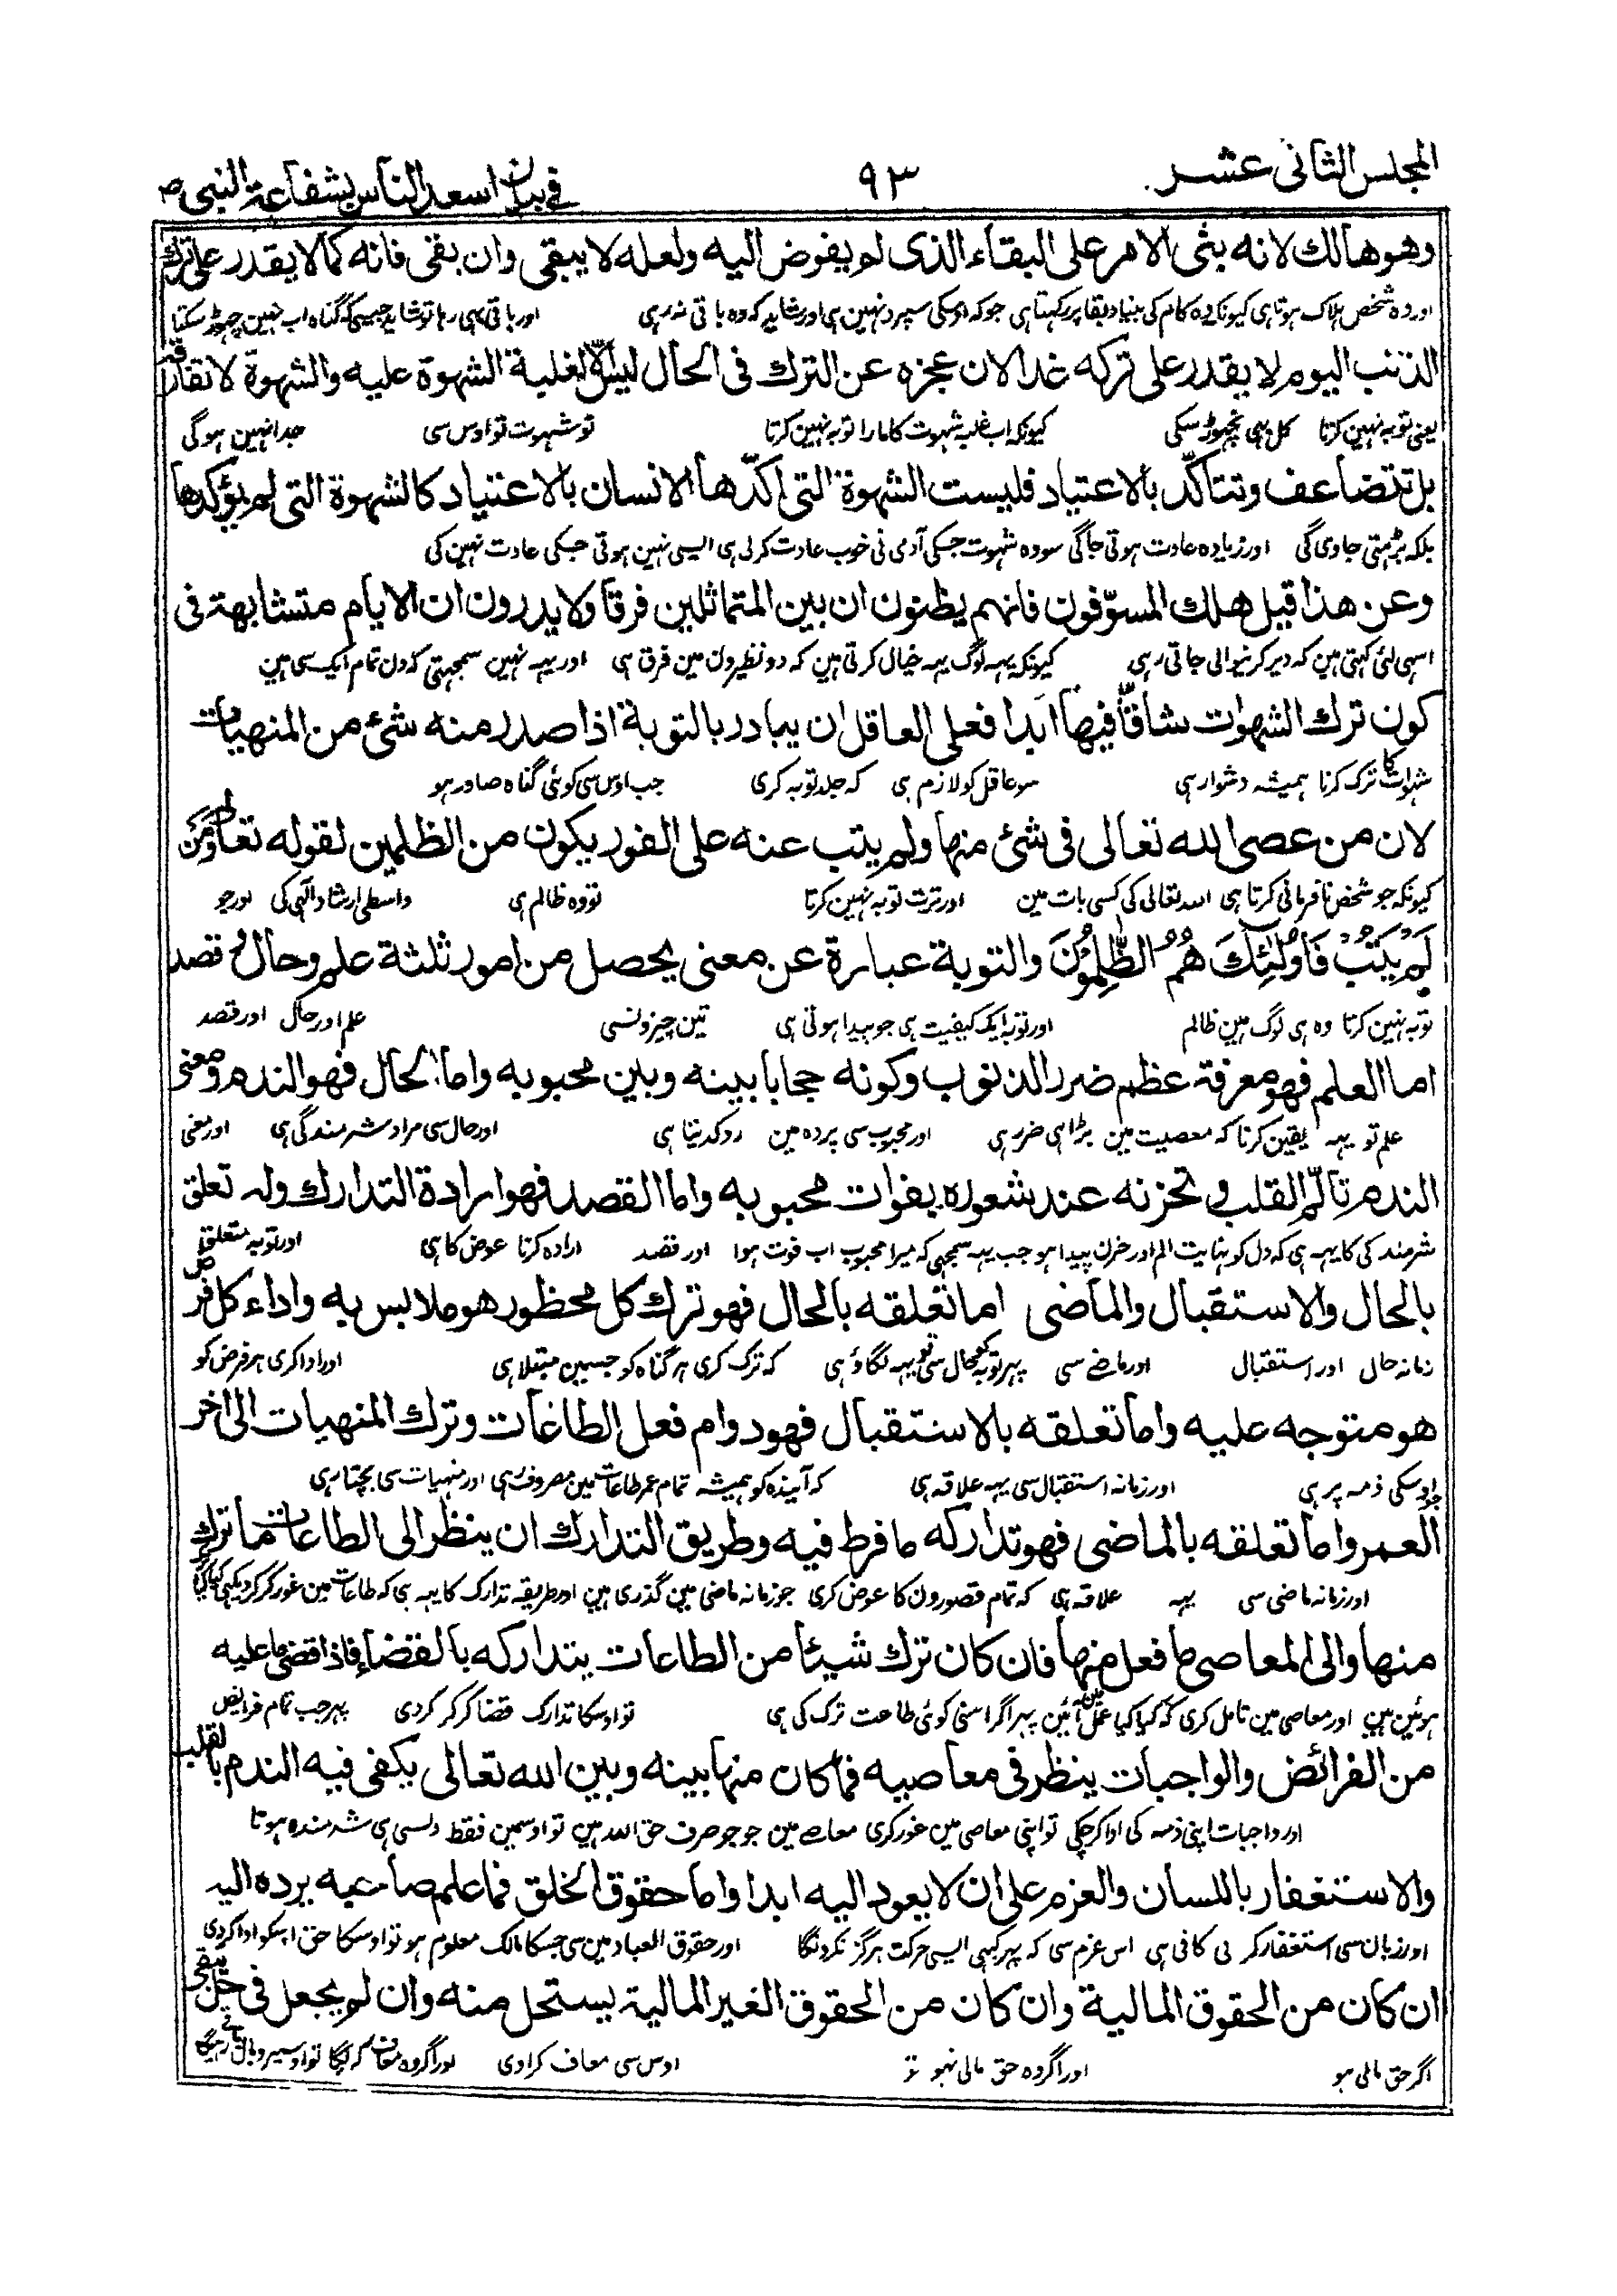 المجلس الثانی عشر
۹۳
فی بیان اسعد الناس بشفاعة النبی ص
وهو هالك لانه بنی الامر علی البقاء الذی لم یفوض الیه ولعله لا یبقی وان بقی فانه كما لا یقدر علی ترك
اور وہ شخص ہلاک ہوتا ہی کیونکہ وہ کام کی بنیاد بقا پر رکہتا ہی جو کہ اوسکی سپرد نہین ہی اور شاید کہ وہ باقی نہ رہی اور باقی بہی رہا تو شاید جیسی کہ گناہ اب نہین چہوڑ سکتا
الذنب الیوم لا یقدر علی تركه غدا لان عجزه عن الترك فی الحال لیس الا لغلبة الشهوة علیه والشهوة لا تفارقه
یعنی توبہ نہین کرتا کل بہی نچہوڑ سکی کیونکہ اب غلبہ شہوت کا مارا توبہ نہین کرتا تو شہوت تو اوس سی جدا نہین ہوگی
بل تتضاعف وتتاكّد بالاعتیاد فلیست الشهوة التی اكّدها الانسان بالاعتیاد كالشهوة التی لم یؤكدها
بلکہ بڑہتی جاوی گی اور زیادہ عادت ہوتی جاگی سو وہ شہوت جسکی آدمی نی خوب عادت کرلی ہی ایسی نہین ہوتی جسکی عادت نہین کی
وعن هذا قیل هلك المسوّفون فانهم یظنون ان بین المتماثلین فرقا ولا یدرون ان الایام متشابهة فی
اسی لئی کہتی ہین کہ دیر کرنیوالی جاتی رہی کیونکہ یہہ لوگ یہہ خیال کرتی ہین کہ دو نظیرون مین فرق ہی اور یہہ نہین سمجہتی کہ دن تمام ایک سی ہین
كون ترك الشهوات شاقّا فیها ابدا فعلی العاقل ان یبادر بالتوبة اذا صدر منه شئ من المنهیات
شہوات کا ترک کرنا ہمیشہ دشوار ہی سو عاقل کو لازم ہی کہ جلد توبہ کری جب اوس سی کوئی گناہ صادر ہو
لان من عصی الله تعالی فی شئ منها ولم یتب عنه علی الفور یكون من الظلمین لقوله تعالی ومن
کیونکہ جو شخص نافرمانی کرتا ہی اللہ تعالی کی کسی بات مین اور ترت توبہ نہین کرتا تو وہ ظالم ہی واسطی ارشاد الہی کی اور جو
لَمْ یَتُبْ فَاُولٰئِكَ هُمُ الظّٰلِمُوْنَ والتوبة عبارة عن معنی یحصل من امور ثلثة علم وحال وقصد
توبہ نہین کرتا وہ ہی لوگ ہین ظالم اور توبہ ایک کیفیت ہی جو پیدا ہوتی ہی تین چیزونسی علم اور حال اور قصد
اما العلم فهو معرفة عظم ضرر الذنوب وكونه حجابا بینه وبین محبوبه واما الحال فهو الندم ومعنی
علم تو یہہ یقین کرنا کہ معصیت مین بڑا ہی ضرر ہی اور محبوب سی پردہ مین روکدیتا ہی اور حال سی مراد شرمندگی ہی اور معنی
الندم تالّم القلب وتحزنه عند شعوره بفوات محبوبه واما القصد فهو ارادة التدارك وله تعلق
شرمندگی کا یہہ ہی کہ دل کو نہایت الم اور حزن پیدا ہو جب یہہ سمجہی کہ میرا محبوب اب فوت ہوا اور قصد ارادہ کرنا عوض کا ہی اور توبہ متعلق
بالحال والاستقبال والماضی اما تعلقه بالحال فهو ترك كل محظور هو ملابس به واداء كل فرض
زمانہ حال اور استقبال اور ماضی سی پہر توبہ کو حال سی تو یہہ لگاؤ ہی کہ ترک کری ہر گناہ کو جسمین مبتلا ہی اور ادا کری ہر فرض کو
هو متوجه علیه واما تعلقه بالاستقبال فهو دوام فعل الطاعات وترك المنهیات الی اخر
جو اوسکی ذمہ پر ہی اور زمانہ استقبال سی یہہ علاقہ ہی کہ آیندہ کو ہمیشہ تمام عمر طاعات مین مصروف رہی اور منہیات سی بچتا رہی
العمر واما تعلقه بالماضی فهو تداركه ما فرط فیه وطریق التدارك ان ینظر الی الطاعات ما ترك
اور زمانہ ماضی سی یہہ علاقہ ہی کہ تمام قصورون کا عوض کری جو زمانہ ماضی مین گذری ہین اور طریقہ تدارک کا یہہ ہی کہ طاعات مین غور کرکر دیکہی کیا کیا
منها والی المعاصی ما فعل منها فان كان ترك شیئا من الطاعات یتداركه بالقضاء فاذا قضی ما علیه
ہوئین ہین اور معاصی مین تامل کری کہ کیا کیا عمل مین آئین پہر اگر اسنی کوئی طاعت ترک کی ہی تو اوسکا تدارک قضا کرکر کردی پہر جب تمام فرایض
من الفرائض والواجبات ینظر فی معاصیه فما كان منها بینه وبین الله تعالی یكفی فیه الندم بالقلب
اور واجبات اپنی ذمہ کی ادا کرچکی تو اپنی معاصی مین غور کری معاصے مین جو جو صرف حق اللہ ہین تو اوسمین فقط دلسی ہی شرمندہ ہوتا
والاستغفار باللسان والعزم علی ان لا یعود الیه ابدا واما حقوق الخلق فما علم صاحبه یرده الیه
اور زبان سی استغفار کر نی کافی ہی اس عزم سی کہ پہر کبہی ایسی حرکت ہرگز نکرونگا اور حقوق العباد مین سی جسکا مالک معلوم ہو تو اوسکا حق اسکو ادا کردی
ان كان من الحقوق المالیة وان كان من الحقوق الغیر المالیة یستحل منه وان لم یجعل فی حل یبقی
اگر حق مالی ہو اور اگر وہ حق مالی نہو تو اوس سی معاف کرادی اور اگر وہ معاف نکریگا تو اوسپر وبال باقی رہیگا